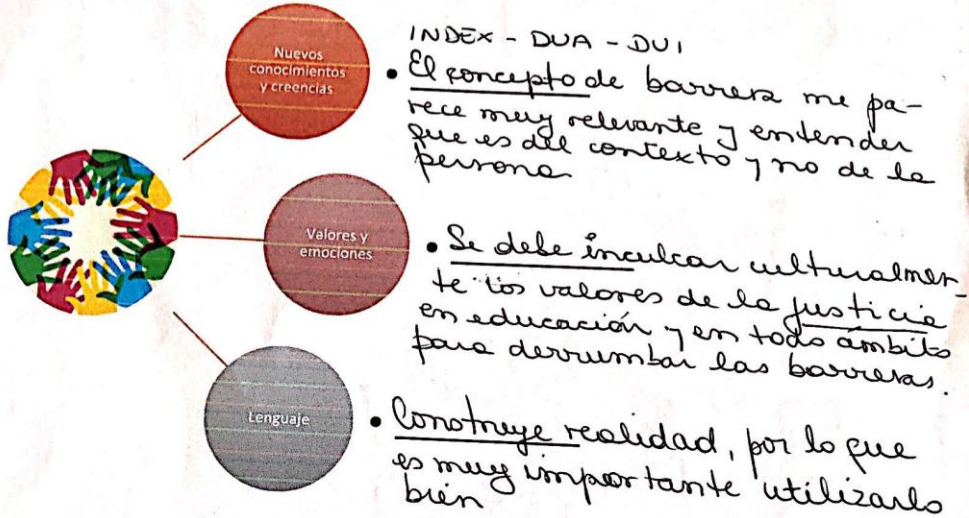 Nuevos
conocimientos
y creencias
INDEX - DUA - DUI
• El concepto de barrera me pa-
rece muy relevante y entender
que es del contexto y no de la
persona
Valores y
emociones
• Se debe inculcar culturalmen-
te los valores de la justicia
en educación y en todo ámbito
para derrumbar las barreras.
Lenguaje
• Construye realidad, por lo que
es muy importante utilizarlo
bien